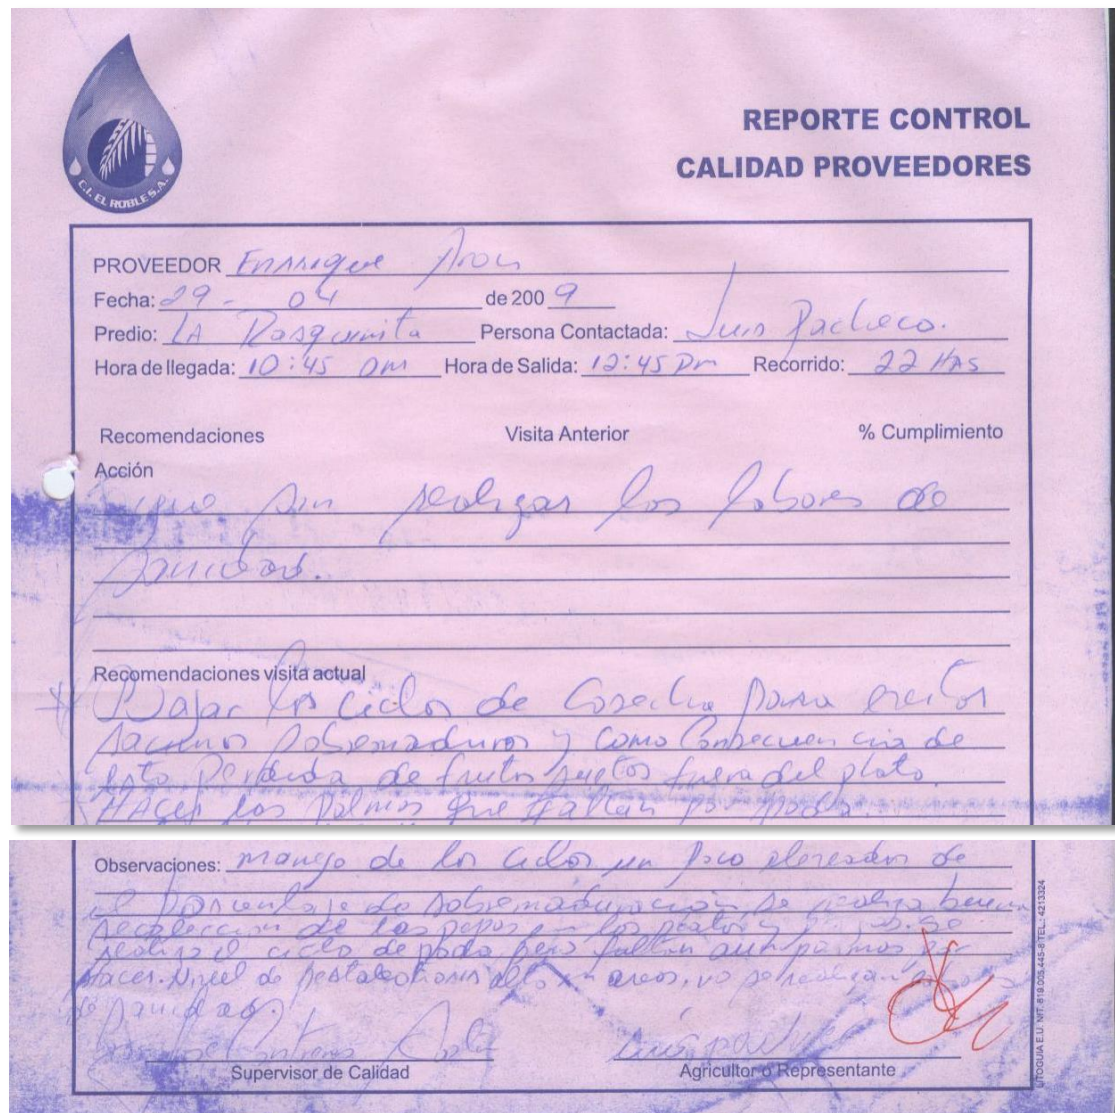 C.I. EL ROBLE S.A.
REPORTE CONTROL
CALIDAD PROVEEDORES
PROVEEDOR Enrrique
Fecha: 29 - 04 de 200 9
Predio: LA Persona Contactada: Luis Pacheco.
Hora de llegada: 10:45 am Hora de Salida: 12:45 Pm Recorrido: 22 HAS
Recomendaciones Visita Anterior % Cumplimiento
Acción
Sigue sin realizar las labores de
sanidad.
Recomendaciones visita actual
Bajar los ciclos de Cosecha para evitar
racimos sobremaduros y como Consecuencia de
esto Perdida de frutos sueltos fuera del plato.
HAcer las Palmas que faltan por poda.
Observaciones: manejo de los ciclos un poco elevados de
el Porcentaje de sobremaduración se realiza buena
recolección de las pepas en los platos y
realiza el ciclo de poda pero faltan aun palmas por
Hacer. Nivel de en areas, no se realizan
de sanidad.
Supervisor de Calidad
Agricultor o Representante
LITOGUIA E.U. NIT. 819.005.445-6 TEL.: 4213324